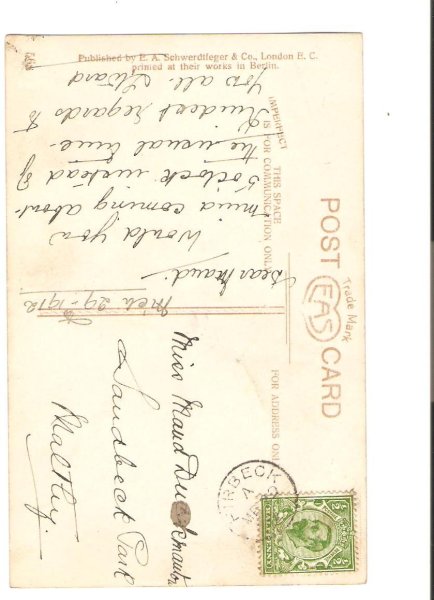 Published by E. A. Schwerdtfeger & Co., London E. C.
printed at their works in Berlin.
POST CARD
EAS
Trade Mark
THIS SPACE
IS FOR COMMUNICATION ONLY
FOR ADDRESS ONLY
Mch 29-1912
Dear Maud.
Would you
mind coming about
5 oclock instead of
the usual time.
Kindest regards to
you all.
Miss Maud
Sandbeck Park
Maltby.
HALFPENNY